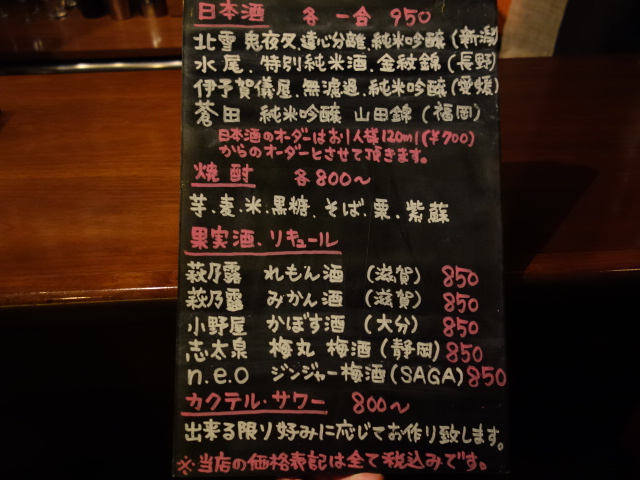 日本酒 各一合 950
北雪 鬼夜叉 遠心分離.純米吟醸 (新潟)
水尾.特別純米酒.金紋錦 (長野)
伊予賀儀屋.無濾過.純米吟醸 (愛媛)
蒼田 純米吟醸 山田錦 (福岡)
日本酒のオーダーはお1人様120ml(¥700)
からのオーダーとさせて頂きます。
焼酎 各800〜
芋、麦、米、黒糖、そば、栗、紫蘇
果実酒、リキュール
萩乃露 れもん酒 (滋賀) 850
萩乃露 みかん酒 (滋賀) 850
小野屋 かぼす酒 (大分) 850
志太泉 梅丸 梅酒 (静岡) 850
n.e.o ジンジャー梅酒 (SAGA) 850
カクテル・サワー 800〜
出来る限り好みに応じてお作り致します。
※当店の価格表記は全て税込みです。